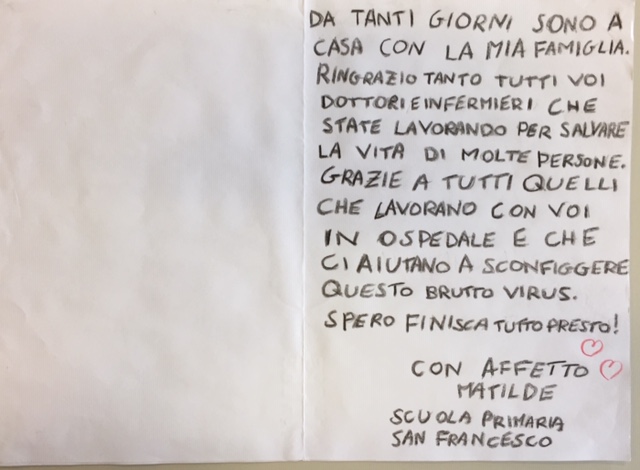 DA TANTI GIORNI SONO A
CASA CON LA MIA FAMIGLIA.
RINGRAZIO TANTO TUTTI VOI
DOTTORI E INFERMIERI CHE
STATE LAVORANDO PER SALVARE
LA VITA DI MOLTE PERSONE.
GRAZIE A TUTTI QUELLI
CHE LAVORANO CON VOI
IN OSPEDALE E CHE
CI AIUTANO A SCONFIGGERE
QUESTO BRUTTO VIRUS.
SPERO FINISCA TUTTO PRESTO!
CON AFFETTO
MATILDE
SCUOLA PRIMARIA
SAN FRANCESCO